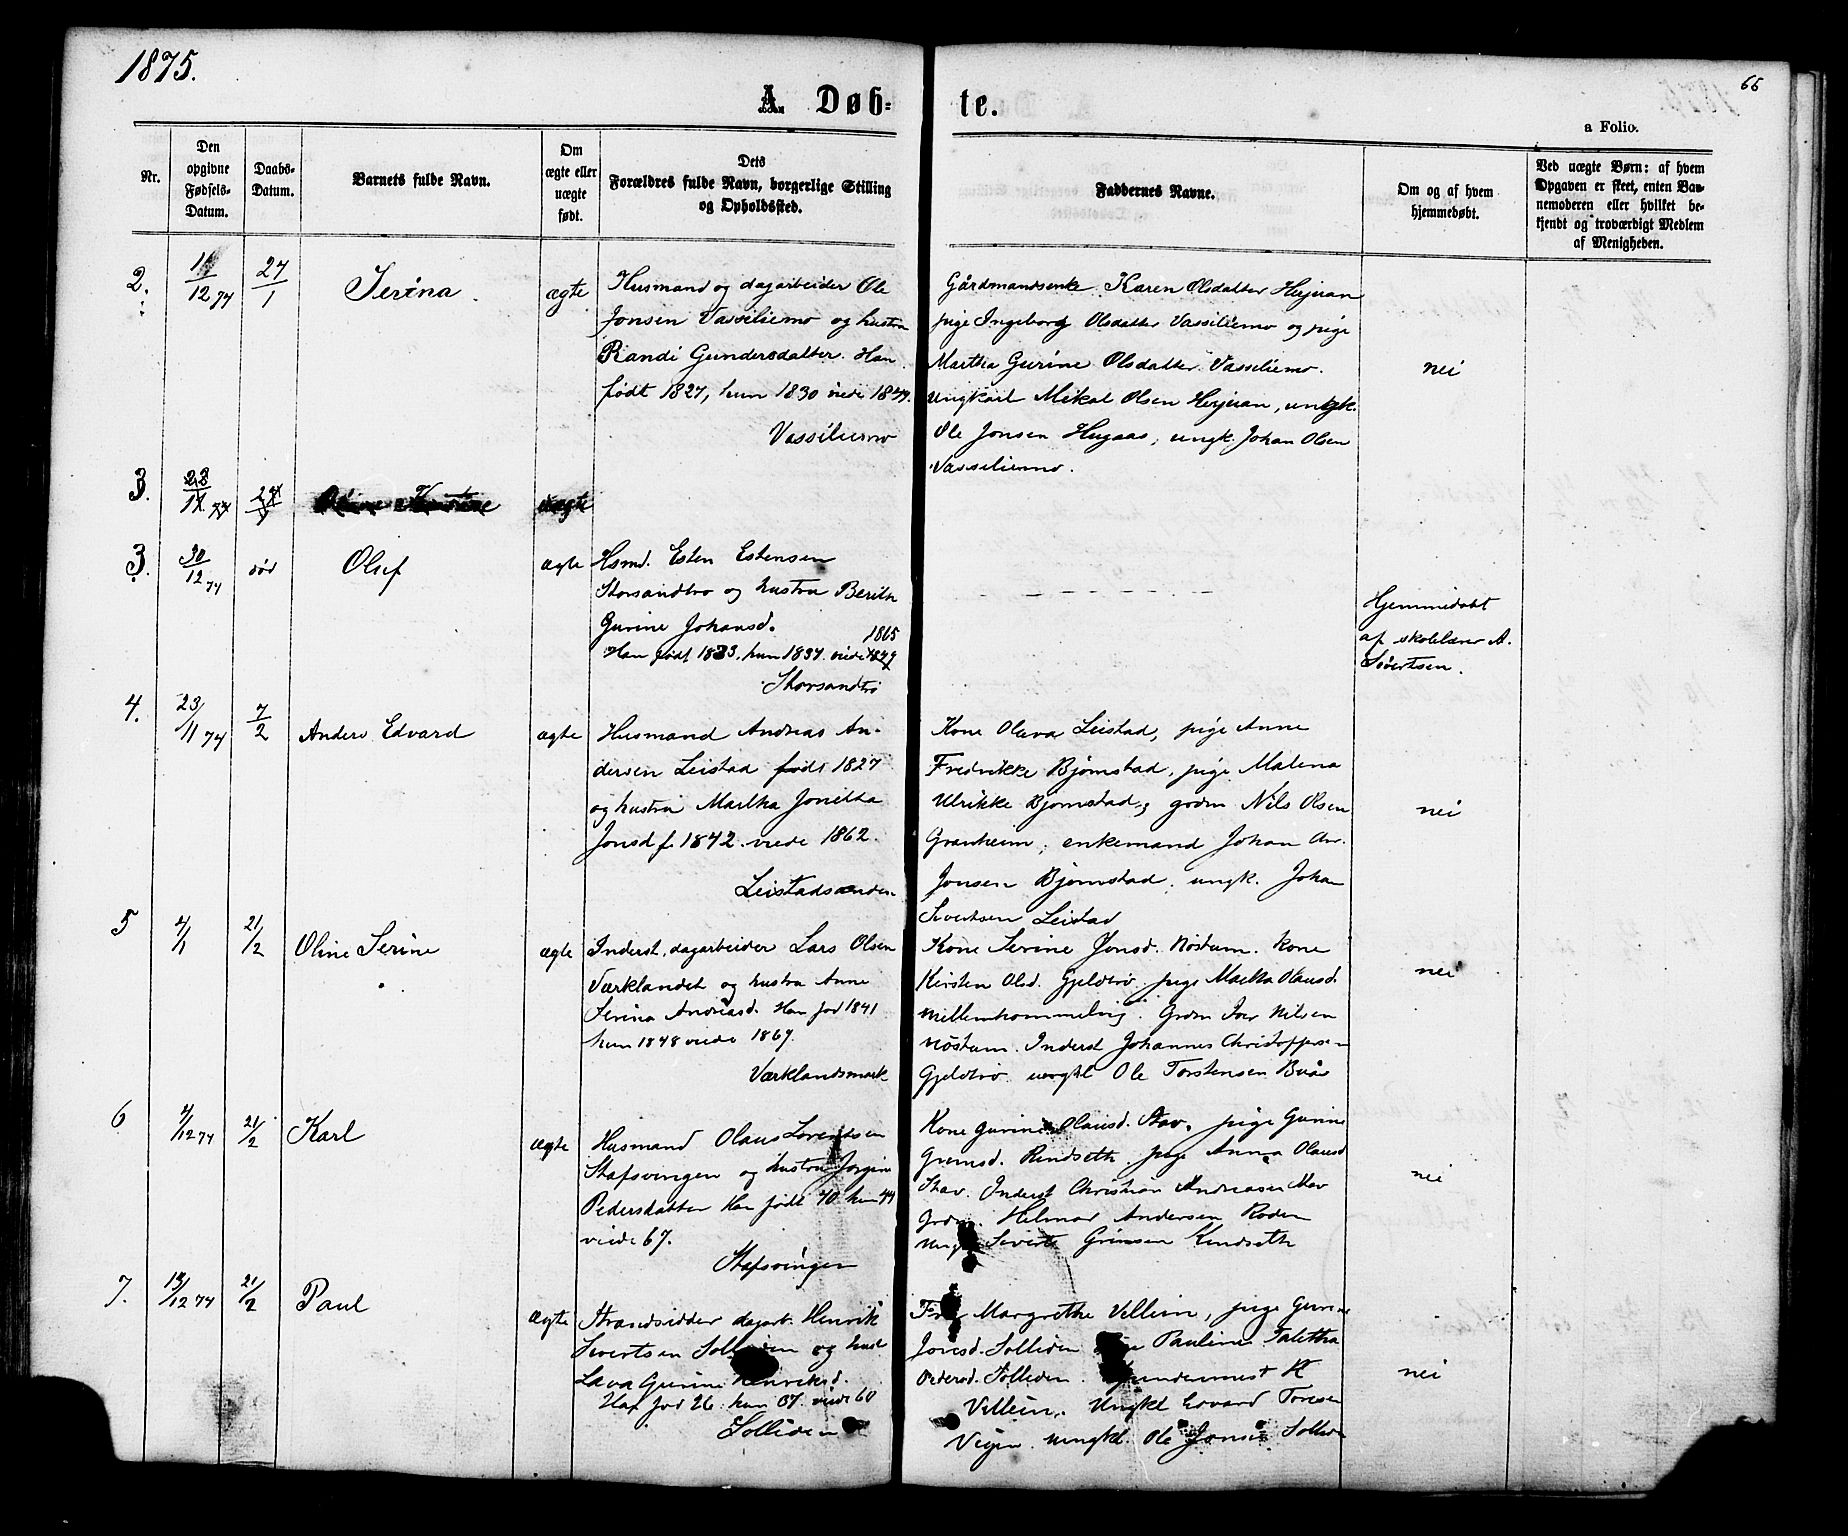 1875.
66
A. Døb-
te.
a Folio.
Nr.
Den opgivne Fødsels-Datum.
Daabs-Datum.
Barnets fulde Navn.
Om ægte eller uægte født.
Dets Forældres fulde Navn, borgerlige Stilling og Opholdssted.
Faddernes Navne.
Om og af hvem hjemmedøbt.
Ved uægte Børn: af hvem Opgaven er skeet, enten Barnemoderen eller hvilket bekjendt og troværdigt Medlem af Menigheden.
2. 12 74 27/1 Serina ægte
Husmand og dagarbeider Ole
Jonsen Vassiliemo og hustru
Randi Gundersdatter. Han
født 1827, hun 1830 viede
Vassiliemo
Gårdmandsenke Karen Olsdatter
pige Ingeborg Olsdatter Vassiliemo og pige
Martha Gurine Olsdatter Vassiliemo.
Ungkarl Mikal Olsen
Ole Jonsen Hugaas, ungk. Johan Olsen
Vassiliemo.
nei
3.
3. 30/12 74 død Oluf ægte
Hsmd. Esten Estensen
Storsandtrø og hustru Berith
Gurine Johansd.
1865
Han født 1833, hun 1837. viede
Storsandtrø
Hjemmedøbt
af skolelærer A.
Sivertsen.
4. 23/11 74 7/2 Anders Edvard ægte
Husmand Andreas An-
dersen Leistad født 1827
og hustru Martha Jonetta
Jonsd f. 1842. viede 1862.
Leistadsanden
Kone Olava Leistad, pige Anne
Fredrikke Bjørnstad, pige Malena
Ulrikke Bjørnstad, grdm Nils Olsen
Granheim, enkemand Johan An.
Jonsen Bjørnstad, ungk. Johan
Sivertsen Leistad
nei
5 4/1 21/2 Oline Serine ægte
Inderst, dagarbeider Lars Olsen
Værklandet og hustru Anne
Serina Andreasd. Han fød 1841
hun 1848 viede 1867.
Værklandsmark
Kone Serine Jonsd. Nøstum. Kone
Kirsten Olsd. Gjeldtrø. pige Martha Olausd.
Grdm Iver Nilsen
Nøstum. Inderst Johannes Christoffersen
Gjeldtrø. ungkl Ole Torstensen Buås
nei
6 4/12 74 21/2 Karl ægte
Husmand Olaus Lorentsen
Stafsvingen og hustru Jørgine
Pedersdatter Han født 40 hun 44
viede 67.
Stafsvingen
Kone Gurine Olausd. Stav. pige Gurine
Grimsd. Rindseth. pige Anna Olausd
Stav. Inderst Christian Andreasen Stav
Grdm. Helmer Andersen Roden
Ungk Sivert Grimsen Rindseth
nei
7. 13/12 74 21/2 Paul ægte
Strandsidder dagarb. Henrik
Sivertsen Solliden og hust
Lava Gurine Henriksd.
Han fød 26. hun 37. viede 60
Solliden
Margrethe Villein, pige Gurine
Jonsd. Solliden Pauline Taletha
Pedersd. Solliden.
Villein. Ungkl Edvard Toresen
Veigen. ungkl. Ole Jonsen Solliden
nei